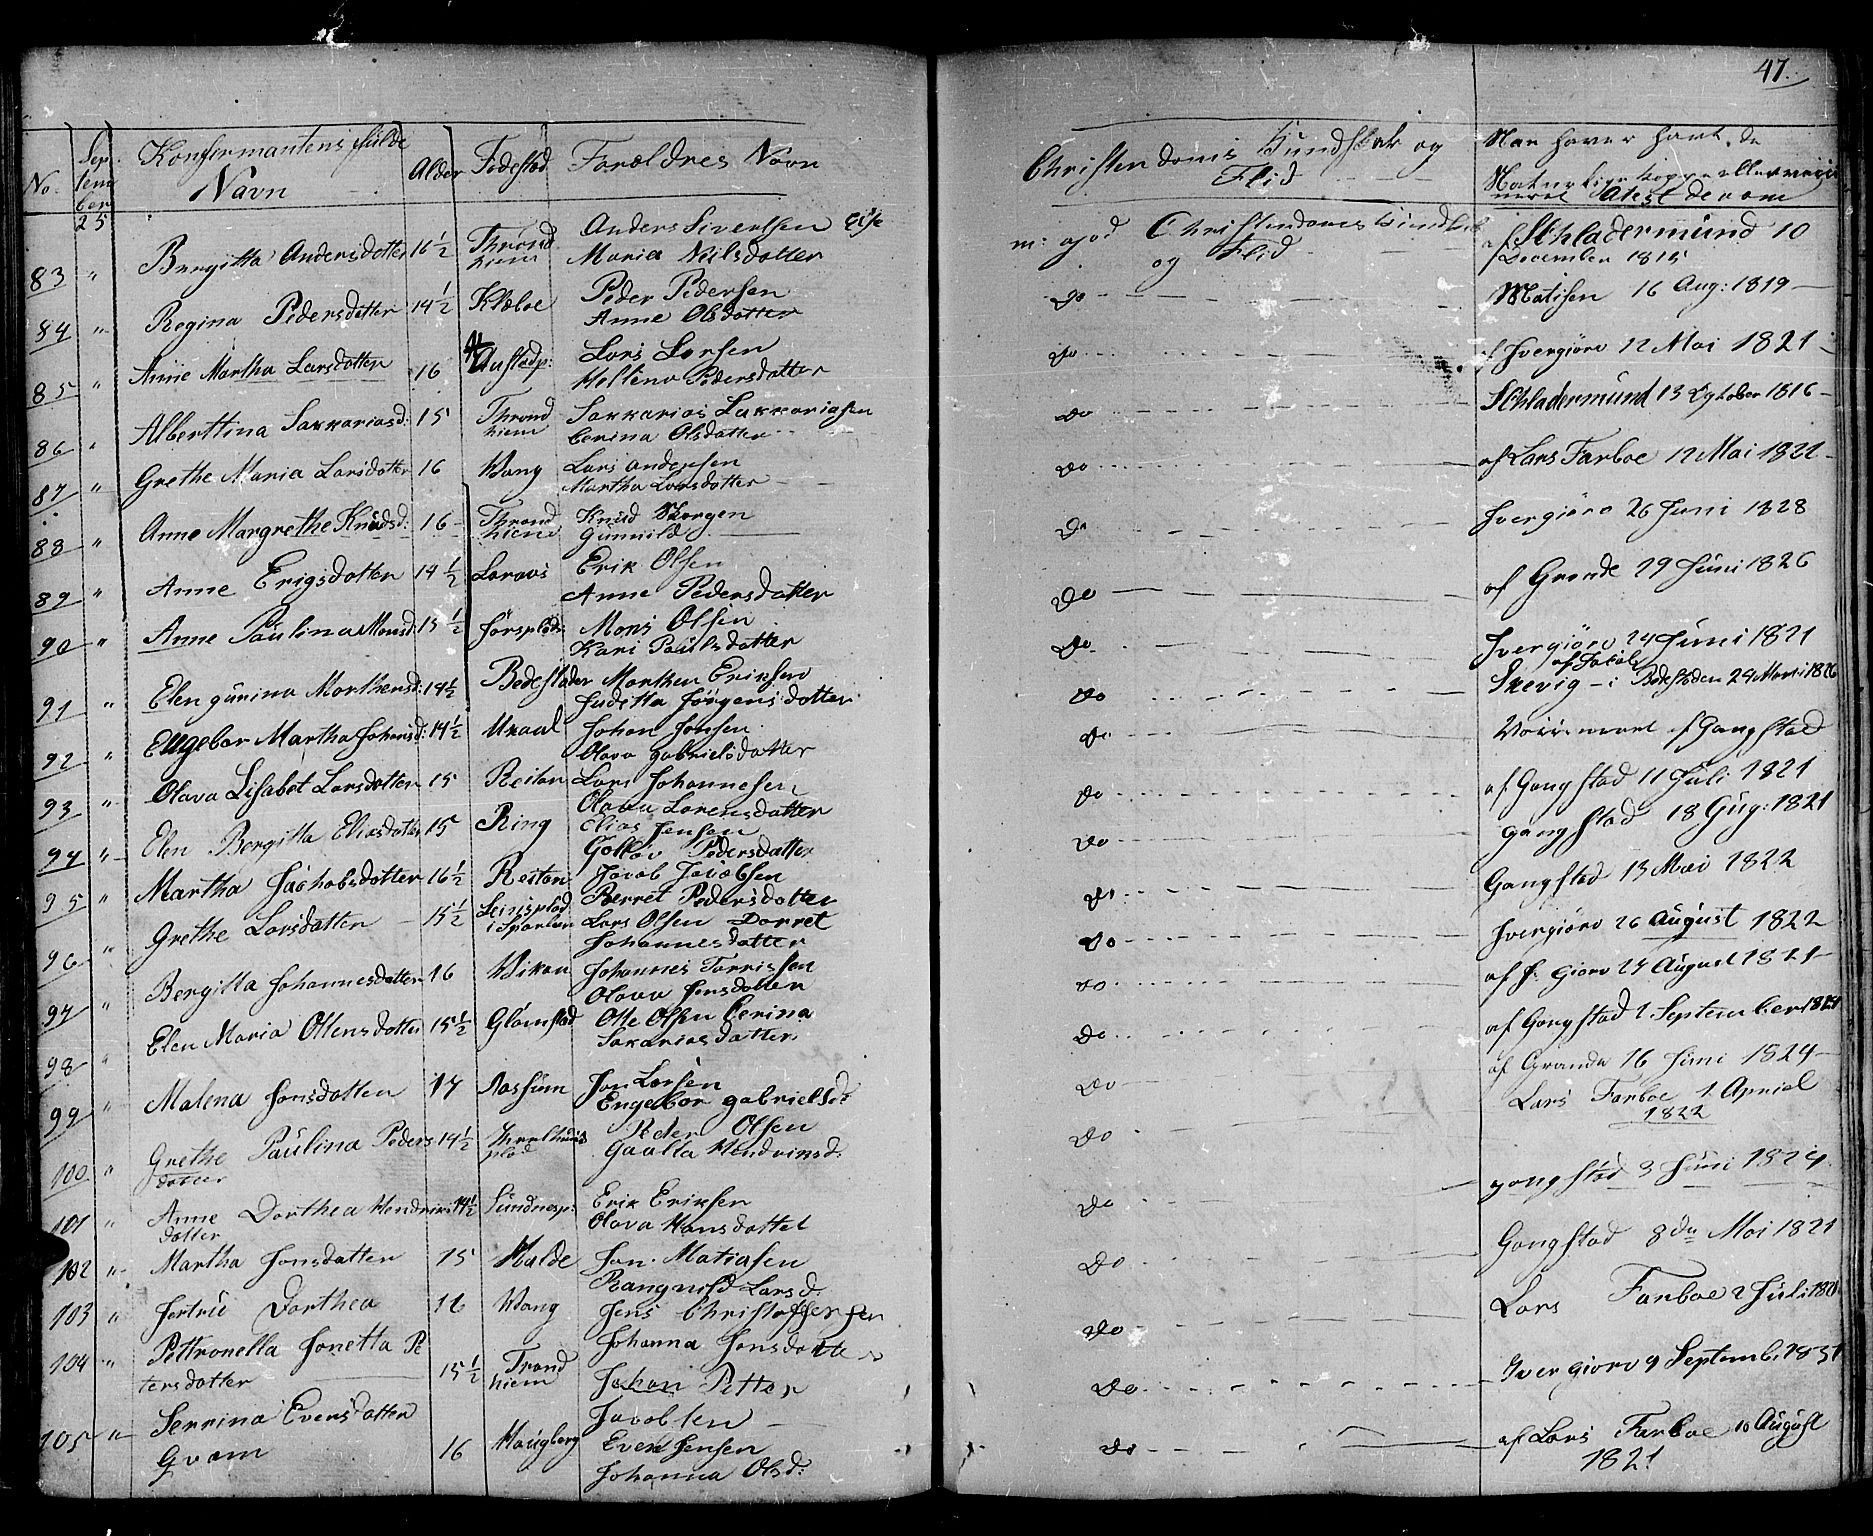 47.
No. September 25 Konfirmantens fulde Navn Alder Fødestæd Forældres Navn Christendoms Kundskab og Flid
Man haver havt de Naturlige kopper eller vaccineret Atest derom
83 " Bergitta Andersdatter 16½ Throndhiem Anders Sivertsen Maria Nilsdatter m: god Christendoms kundskab og Flid af Schladermund 10 December 1815
84 " Regina Pedersdatter 14½ Klæboe Peder Pedersen Anne Olsdatter do Matisen 16 Aug: 1819
85 " Anne Martha Larsdatter 16 Lars Larsen Hellena Pedersdatter do af Jvergiøro 12 Mai 1821
86 " Alberttina Sakkariasd: 15 Throndhiem Sakkarias Sakkariasen Cerina Olsdatter do Schladermund 13 October 1816
87 " Grethe Maria Larsdatter 16 Wang Lars Andersen Martha Larsdatter do af Lars Farboe 12 Mai 1821
88 " Anne Margrethe Knudsd: 16 Throndhiem Knud Gunnild do Jvergiøro 26 Juni 1828
89 " Anne Erigsdatter 14½ Erik Olsen Anne Pedersdatter do af Grande 29 Juni 1826
90 " Anne Paulina Monsd: 15½ Mons Olsen Kari Paulsdatter do Jvergiøro 24 Juni 1821
91 " Elen gurina Morthensd: 14½ Bedestader Morthen Eriksen Juditta Jörgensdatter do af Jacob Skevig i Bedestaden 24 Marti 1826
92 " Engebor Martha Johansd: 14½ Johan Jonsen Olava gabrielsdatter do af Gangstad
93 " Olava Lisabet Larsdatter 15 Reitan Lars Johannesen Olava Lorensdatter do af Gangstad 11 Juli 1821
94 " Elen Bergitta Eliasdatter 15 Ring Elias Jensen Pedersdatter do gangstad 18 Gug: 1821
95 " Martha Jachobsdatter 16½ Reitan Jacob Jacobsen Berret Pedersdatter do Gangstad 13 Mai 1822
96 " Grethe Larsdatter 15½ Lars Olsen Dorret Johannesdatter do Jvergiøro 26 August 1822
97 " Bergitta Johannesdatter 16 Wikan Johannes Torrissen Olava Jonsdatter do af J: giøro 24 August 1821
98 " Elen Maria Ottensdatter 15½ Glomstad Otte Olsen Cerina Sakariasdatter do af Gangstad 1 September 1821
99 " Malena Jonsdatter 17 Aashum Jon Larsen Engebor gabrielsd: do af Grande 16 Juni 1824
100 " Grethe Paulina Pedersdatter 14½ Peder Olsen do Lars Farboe 1 Apriel 1822
101 " Anne Dorthea Hendriksdatter 14½ Sundnesp: Erik Eriksen Olava Hansdatter do gangstad 3 Juni 1824
102 " Martha Jonsdatter 15 Halde Jon Matiasen Rangnild Larsd. do Gangstad 8de Mai 1821
103 " Jertrü Dorthea 16 Wang Jens Christoffersen Johanna Jonsdatter do Lars Farboe 2 Juli
104 " Pettronella Jonetta Petersdatter 15½ Trondhiem Johan Petter Jacobsen do Jvergiøro 9 Septemb. 1831
105 " Serrina Evensdatter Gvam 16 Haugberg Even Jensen Johanna Olsd: do af Lars Farboe 10 August 1821